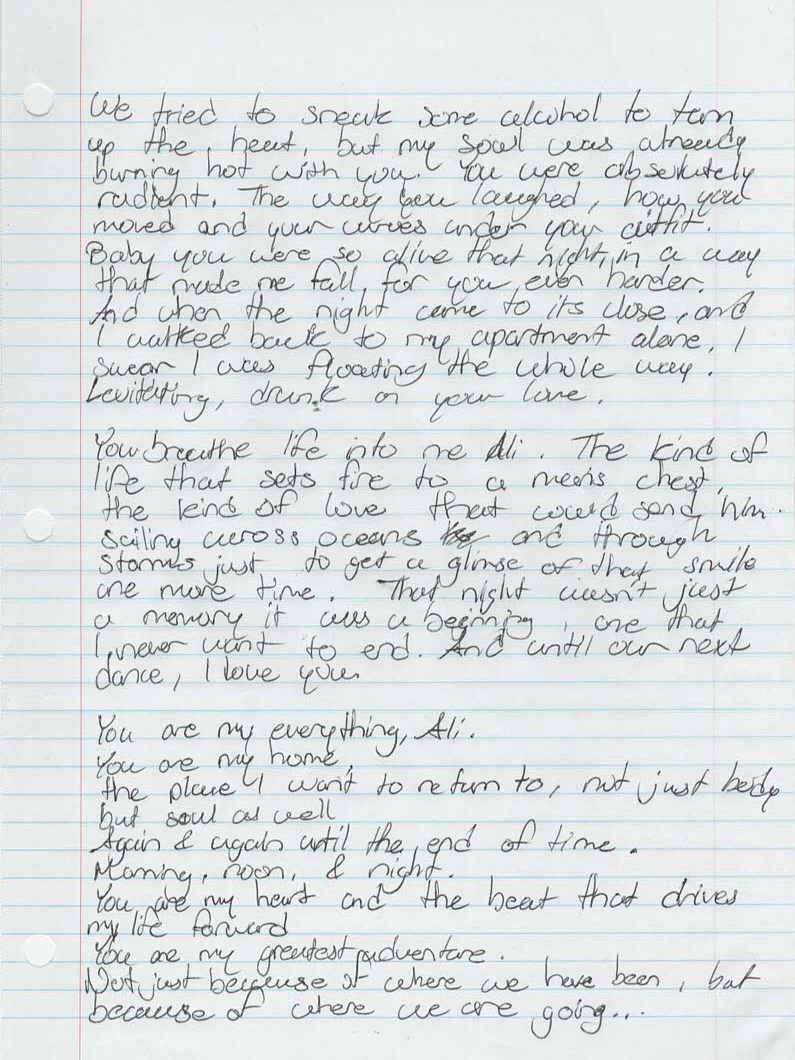 We tried to sneak some alcohol to turn
up the heat, but my soul was already
burning hot with you. You were absolutely
radient. The way you laughed, how you
moved and your curves under your outfit.
Baby you were so alive that night, in a way
that made me fall for you even harder.
And when the night came to its close, and
I walked back to my apartment alone, I
swear I was floating the whole way.
Levitating, drunk on your love.
You breathe life into me Ali. The kind of
life that sets fire to a men's chest,
the kind of love that could send him
sailing across oceans and through
storms just to get a glimse of that smile
one more time. That night wasn't just
a memory it was a beginning, one that
I never want to end. And until our next
dance, I love you.
You are my everything, Ali.
You are my home,
the place I want to return to, not just body
but soul as well
Again & again until the end of time.
Morning, noon, & night.
You are my heart and the beat that drives
my life forward
You are my greatest adventure.
Not just because of where we have been, but
because of where we are going...